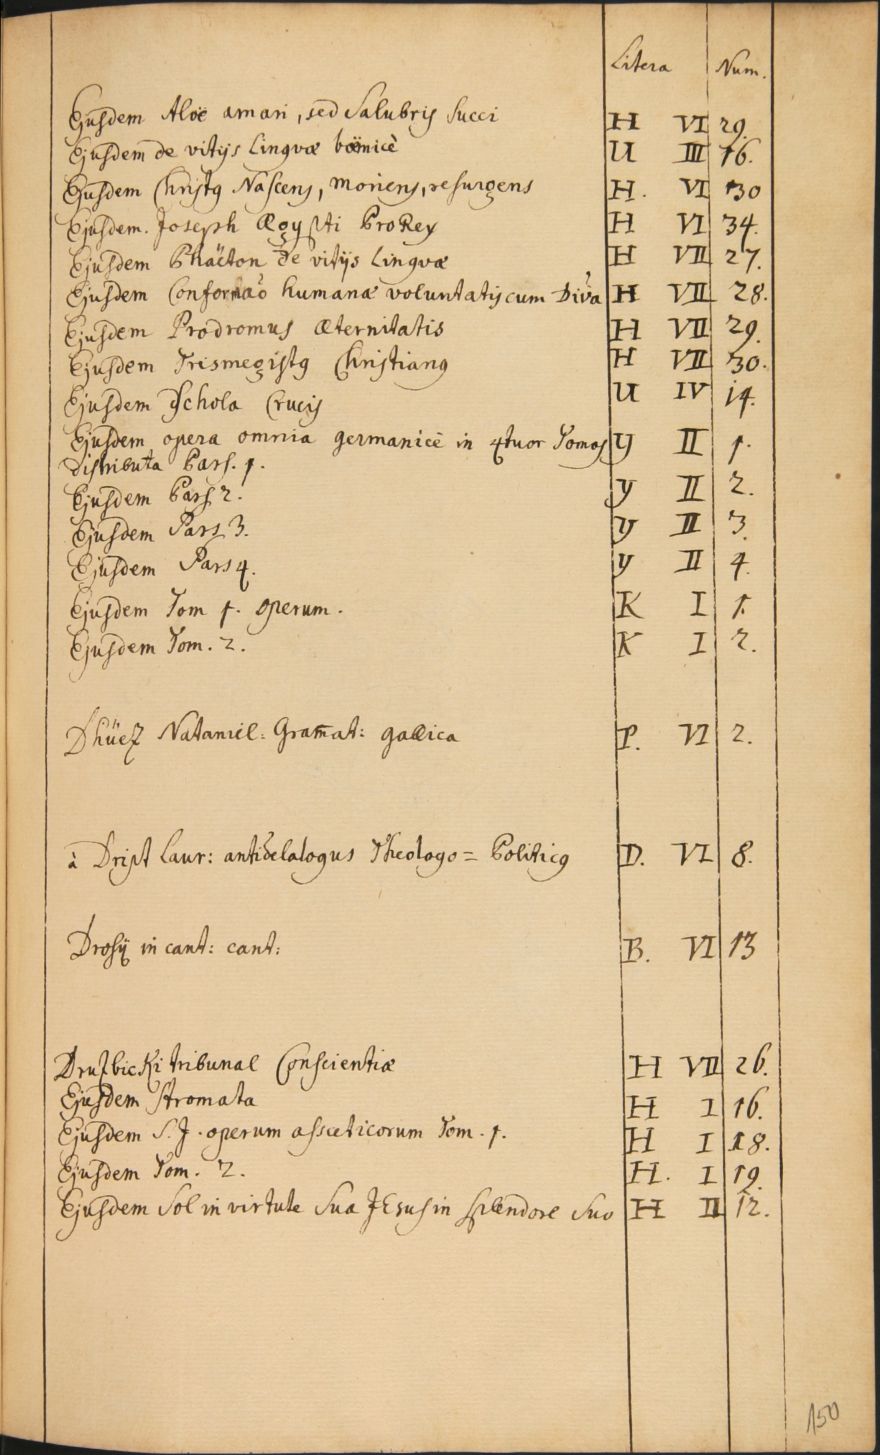 Litera Num.
Ejusdem Aloë amari, sed Salubris Succi H VI 29.
Ejusdem de vitijs Lingvæ boëmicè U III 16.
Ejusdem Christg Nascens, moriens, resurgens H. VI 30
Ejusdem. Joseph Ægypti ProRex H VI 34.
Ejusdem Phaëton de vitijs Lingvæ H VII 27.
Ejusdem Conformaõ humanæ voluntatis cum Divã H VII 28.
Ejusdem Prodromus æternitatis H VII 29.
Ejusdem Trismegistg Christiang H VII 30.
Ejusdem Schola Crucis U IV 14.
Ejusdem opera omnia germanicè in 4tuor Tomos y II 1.
distributa Pars. 1.
Ejusdem Pars 2. y II 2.
Ejusdem Pars 3. y II 3.
Ejusdem Pars 4. y II 4.
Ejusdem Tom 1. operum. K I 1.
Ejusdem Tom. 2. K I 2.
Dhüez Nataniel: Gram̄at: gallica P. VI 2.
à Dript Laur: antidelalogus Theologo= Politicg D. VI 8.
Drosÿ in cant: cant: B. VI 13
Druzbicki tribunal Conscientiæ H VII 26.
Ejusdem Stromata H I 16.
Ejusdem S. J. operum asceticorum Tom. 1. H I 18.
Ejusdem Tom. 2. H. I 19.
Ejusdem Sol in virtute Sua JEsus in Splendore Suo H II 12.
150